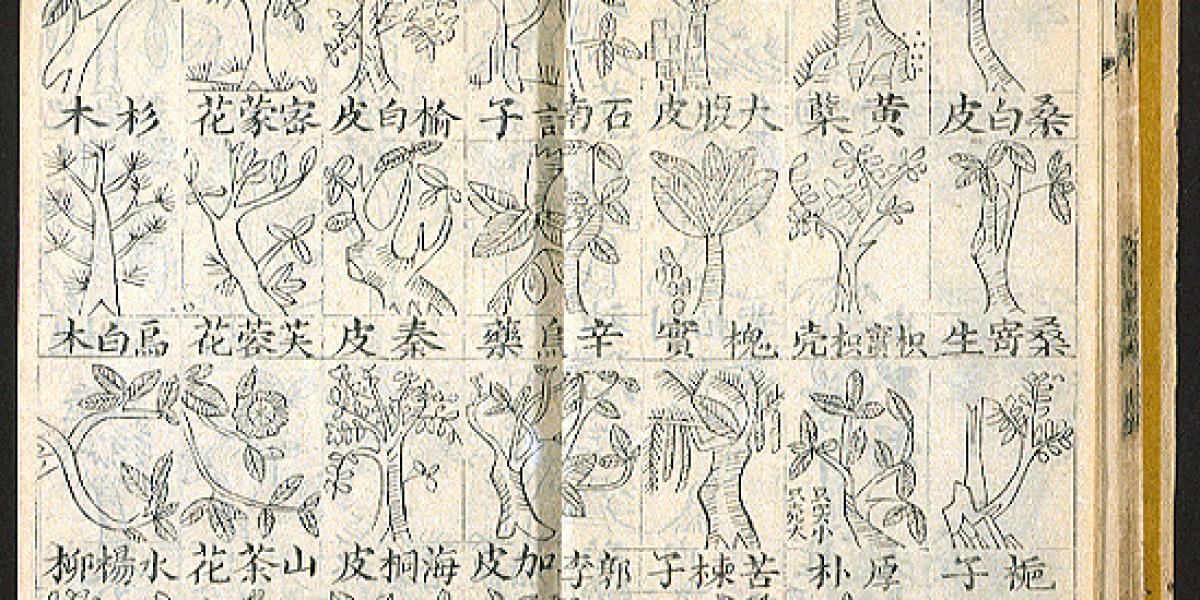 桑白皮 黄蘗 大腹皮 石南 訶子 榆白皮 宻蒙花 杉木
桑寄生 枳實枳壳 槐實 辛 烏藥 秦皮 芙蓉花 烏臼木
栀子 厚朴 苦楝子 郁李 加皮 海桐皮 山茶花 水楊柳